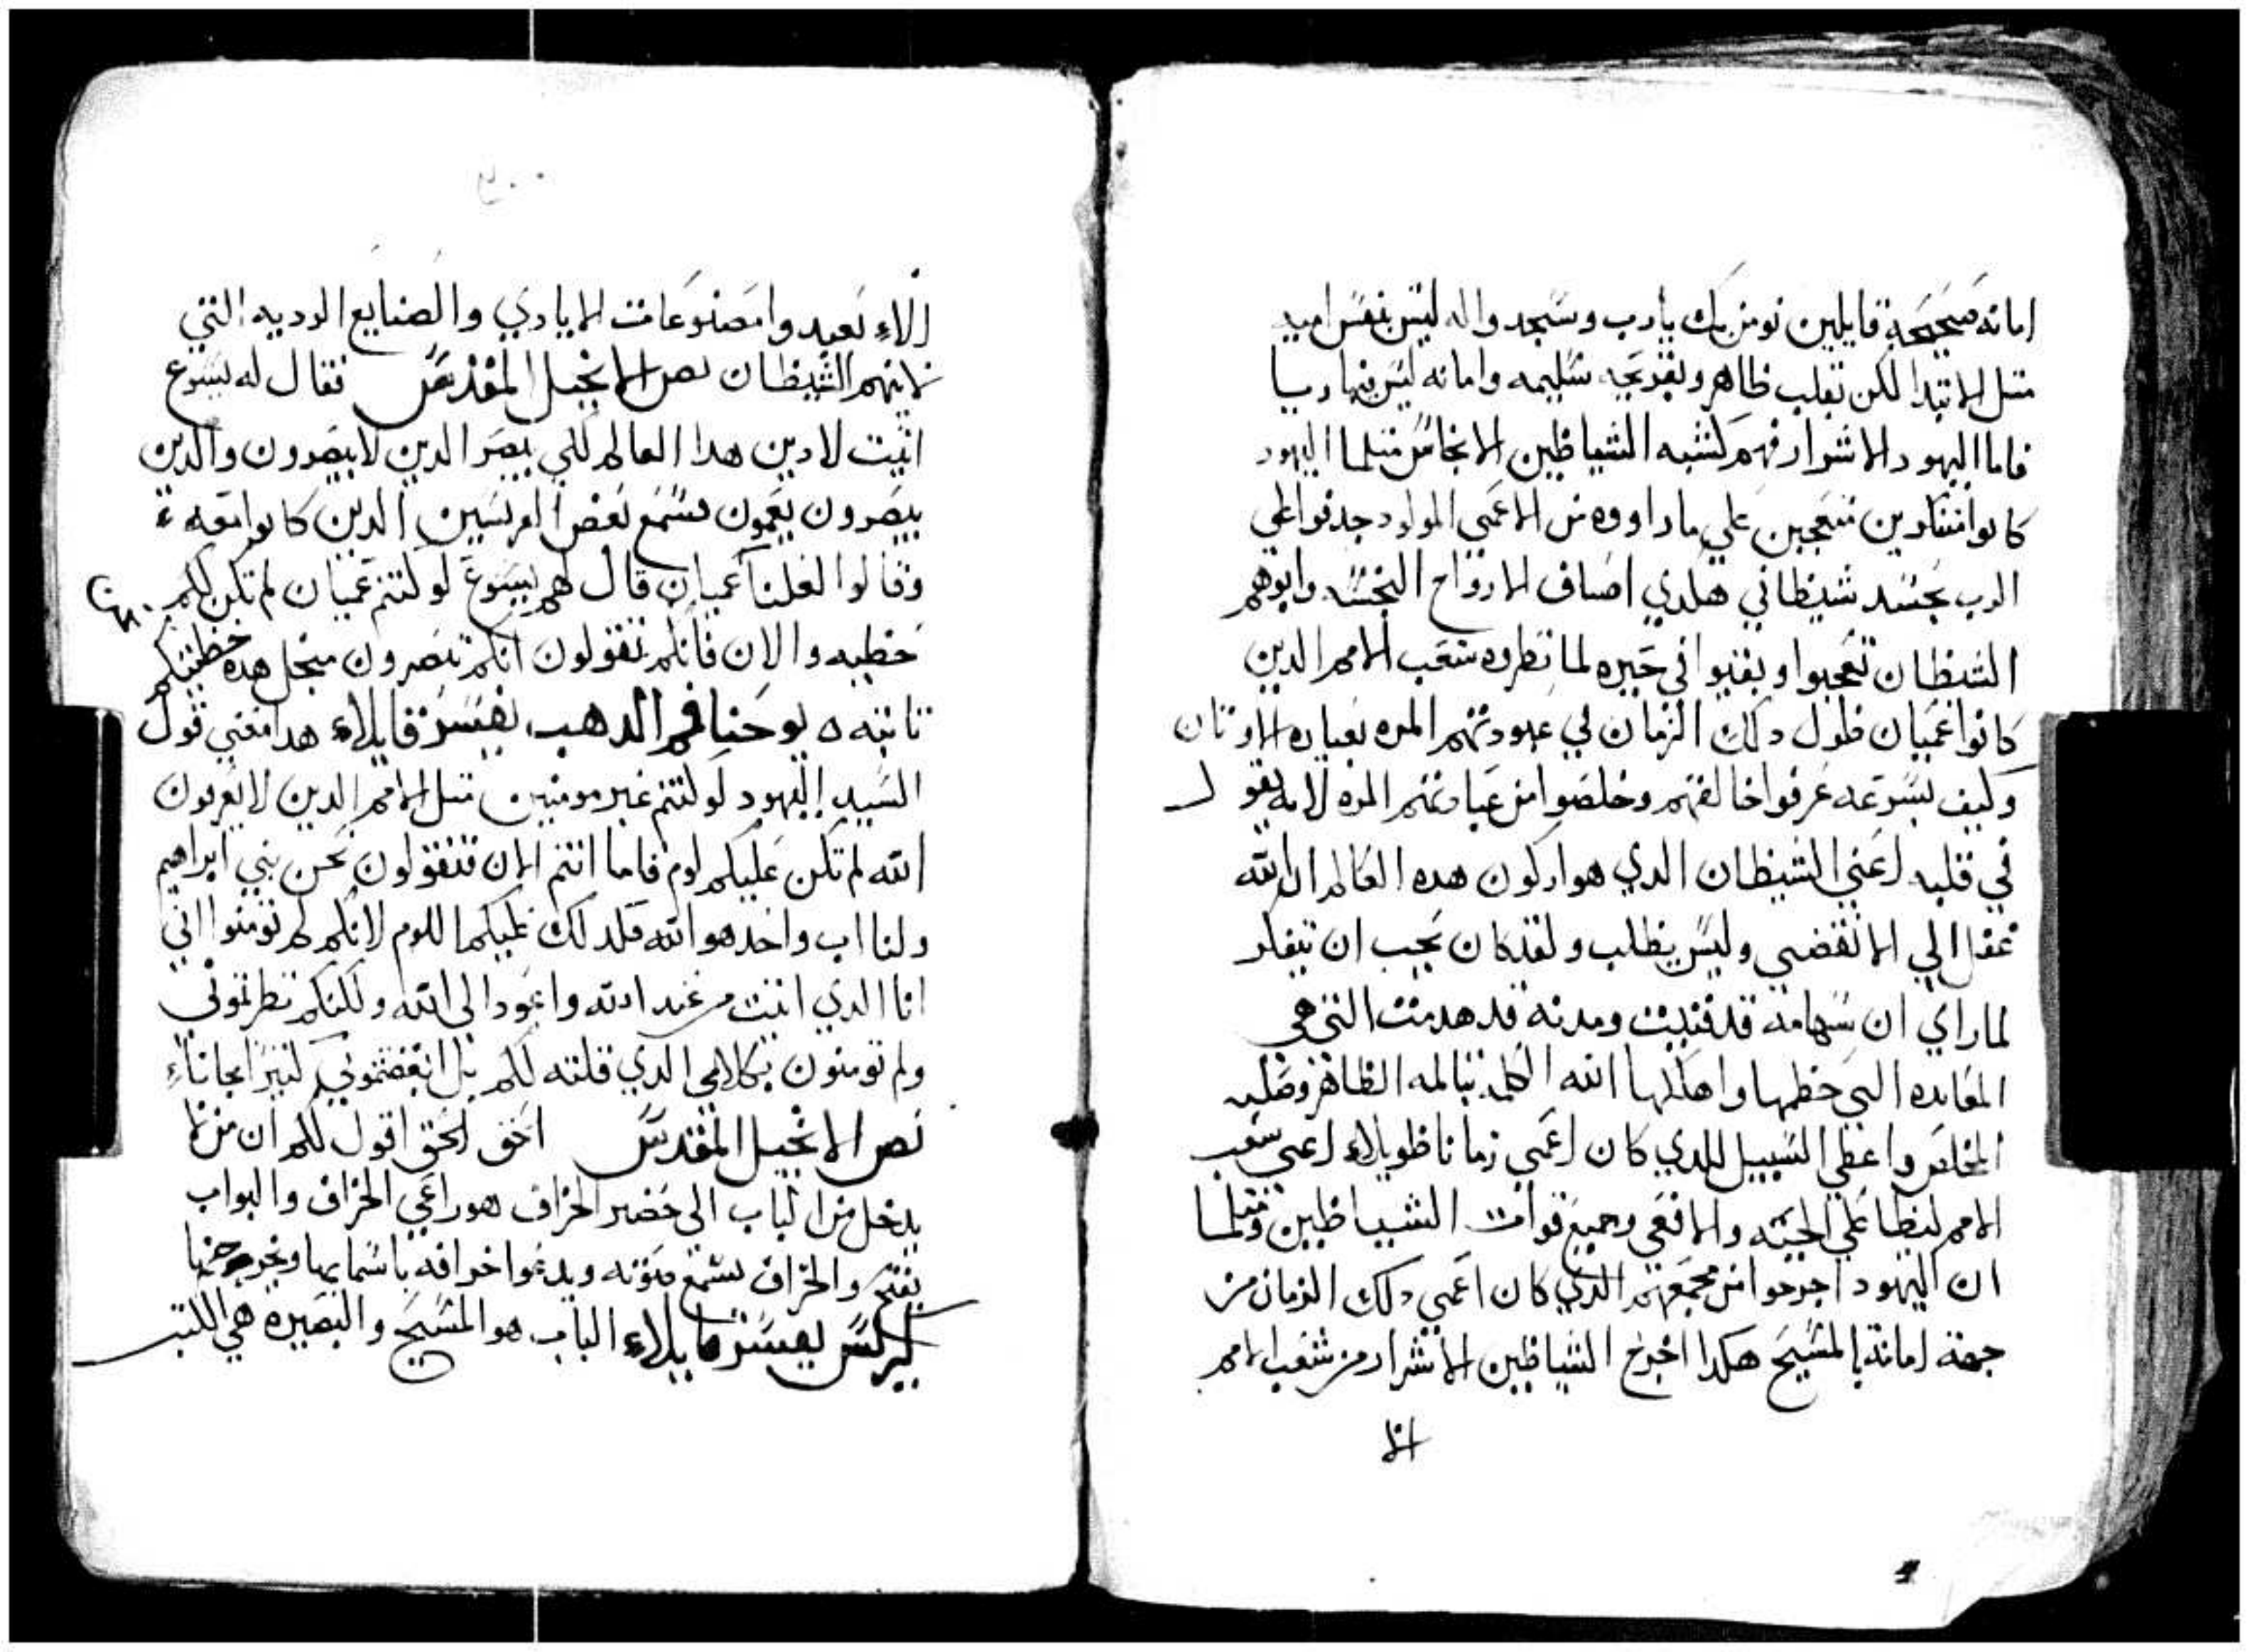 امانه صحيحة قايلين نومن بك يارب وسجد واله ليس بنفس اميه
متل الابتدا لكن بقلب طاهر وبقريحه سليمه وامانه ليس فيها ريبا
فاما اليهود الاشرار فهم كشبه الشياطين الانجاس متلما اليهود
كانوا متعجبين علي ما راووه من الاعمي المولود جدفوا علي
الرب بجسد شيطاني هكدي اصناف الارواح النجسه وابوهم
الشيطان تعجبوا وبقيوا في حيره لما نظروه شعب الامم الدين
كانوا عميان طول دلك الزمان في عبودتهم المره بعباده الاوتان
وكيف بسرعه عرفوا خالقهم وخلصوا من عبادتهم المره لانه يقول
في قلبه اعني الشيطان الدي هو اركون هده العالم ان الله
غفل الي الانقضي وليس يطلب ولقد كان يجب ان يتفكر
لما راي ان سهامه قد فنيت ومدنه قد هدمت التي هي
المعانده التي حطمها واهلكها الله الكلمه بتالمه الطاهر وصلبه
المخلص واعطي السبيل للدي كان اعمي زمانا طويلاء اعني شعب
الامم ليطا علي الحيه والافعي وجميع قوات الشياطين ومتلما
ان اليهود اخرجوا من مجمعهم الدي كان اعمي دلك الزمان من
جهة امانة بالمسيح هكدا اخرج الشياطين الاشرار من شعب الامم
الا
٢٠٠
الاء نعبدوا مصنوعات الايادي والصنايع الرديه التي
لانهم الشيطان نص الانجيل المقدس فقال له يسوع
اتيت لادين هدا العالم لكي يبصر الدين لا يبصرون والدين
يبصرون يعمون فسمع بعض الفريسين الدين كانوا معه
وقالوا لعلنا عميان قال لهم يسوع لو كنتم عميان لم تكن لكم
خطيه والان فانكم تقولون انكم تبصرون منجل هده خطيتكم
تابته ه يوحنا فم الدهب يفسر قايلاء هدا معني قول
السيد اليهود لو كنتم غير مومنين متل الامم الدين لا يعرفون
الله لم تكن عليكم لوم فاما انتم الان فتقولون نحن بني ابراهيم
ولنا اب واحد هو الله فلدلك عليكم اللوم لانكم لم تومنوا اني
انا الدي اتيت من عند الله واعود الي الله ولكنكم نظرتموني
ولم تومنون بكلامي الدي قلته لكم بل ابغضتموني كتيرا مجاناء
نص الانجيل المقدس الحق الحق اقول لكم ان من لا
يدخل من الباب الي حضير الخراف هو راعي الخراف والبواب
يفتح والخراف تسمع صوته ويدعوا خرافه باسمايها ويخرجها
كيرلس يفسر قايلاء الباب هو المسيح والبصيره هي الكتب